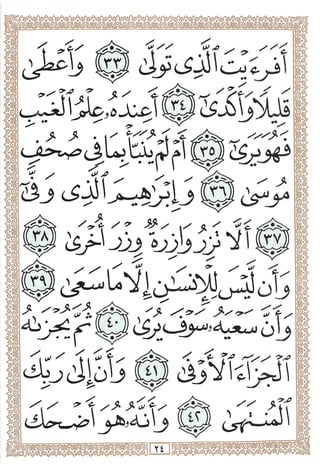 أَفَرَءَيْتَ ٱلَّذِى تَوَلَّىٰ ٣٣ وَأَعْطَىٰ
قَلِيلًا وَأَكْدَىٰٓ ٣٤ أَعِندَهُۥ عِلْمُ ٱلْغَيْبِ
فَهُوَ يَرَىٰٓ ٣٥ أَمْ لَمْ يُنَبَّأْ بِمَا فِى صُحُفِ
مُوسَىٰ ٣٦ وَإِبْرَٰهِيمَ ٱلَّذِى وَفَّىٰٓ
٣٧ أَلَّا تَزِرُ وَازِرَةٌ وِزْرَ أُخْرَىٰ ٣٨
وَأَن لَّيْسَ لِلْإِنسَٰنِ إِلَّا مَا سَعَىٰ ٣٩
وَأَنَّ سَعْيَهُۥ سَوْفَ يُرَىٰ ٤٠ ثُمَّ يُجْزَىٰهُ
ٱلْجَزَآءَ ٱلْأَوْفَىٰ ٤١ وَأَنَّ إِلَىٰ رَبِّكَ
ٱلْمُنتَهَىٰ ٤٢ وَأَنَّهُۥ هُوَ أَضْحَكَ
٢٤